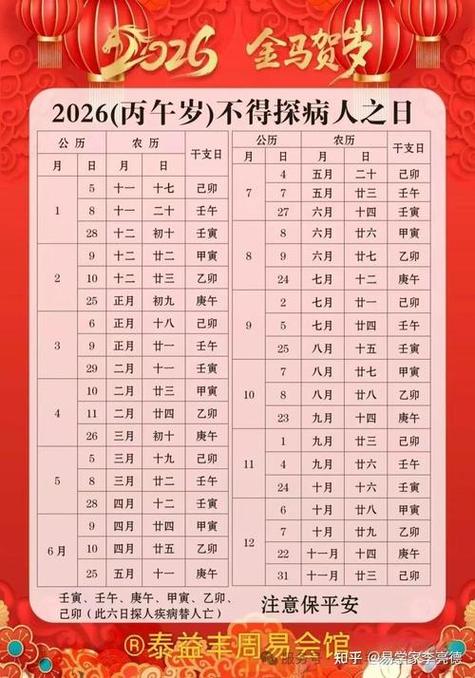 2026 金马贺岁
2026(丙午岁)不得探病人之日
公历 农历 干支日
月 日 月 日
1 5 十一 十七 己卯
8 十一 二十 壬午
28 十二 初十 壬寅
2 9 十二 廿二 甲寅
10 十二 廿三 乙卯
25 正月 初九 庚午
3 6 正月 十八 己卯
9 正月 廿一 壬午
29 二月 十一 壬寅
4 10 二月 廿三 甲寅
11 二月 廿四 乙卯
26 三月 初十 庚午
5 5 三月 十九 己卯
8 三月 廿二 壬午
28 四月 十二 壬寅
6月 9 四月 廿四 甲寅
10 四月 廿五 乙卯
25 五月 十一 庚午
公历 农历 干支日
月 日 月 日
7 4 五月 二十 己卯
7 五月 廿三 壬午
27 六月 十四 壬寅
8 8 六月 廿六 甲寅
9 六月 廿七 乙卯
24 七月 十二 庚午
9 2 七月 廿一 己卯
5 七月 廿四 壬午
25 八月 十五 壬寅
10 7 八月 廿七 甲寅
8 八月 廿八 乙卯
23 九月 十四 庚午
11 1 九月 廿三 己卯
4 九月 廿六 壬午
24 十月 十六 壬寅
12 6 十月 廿八 甲寅
7 十月 廿九 乙卯
22 十一月 十四 庚午
31 十一月 廿三 己卯
壬寅、壬午、庚午、甲寅、乙卯、
己卯（此六日探人疾病替人亡）
注意保平安
®泰益丰周易会馆
服务号
知乎 @易学家李亮德